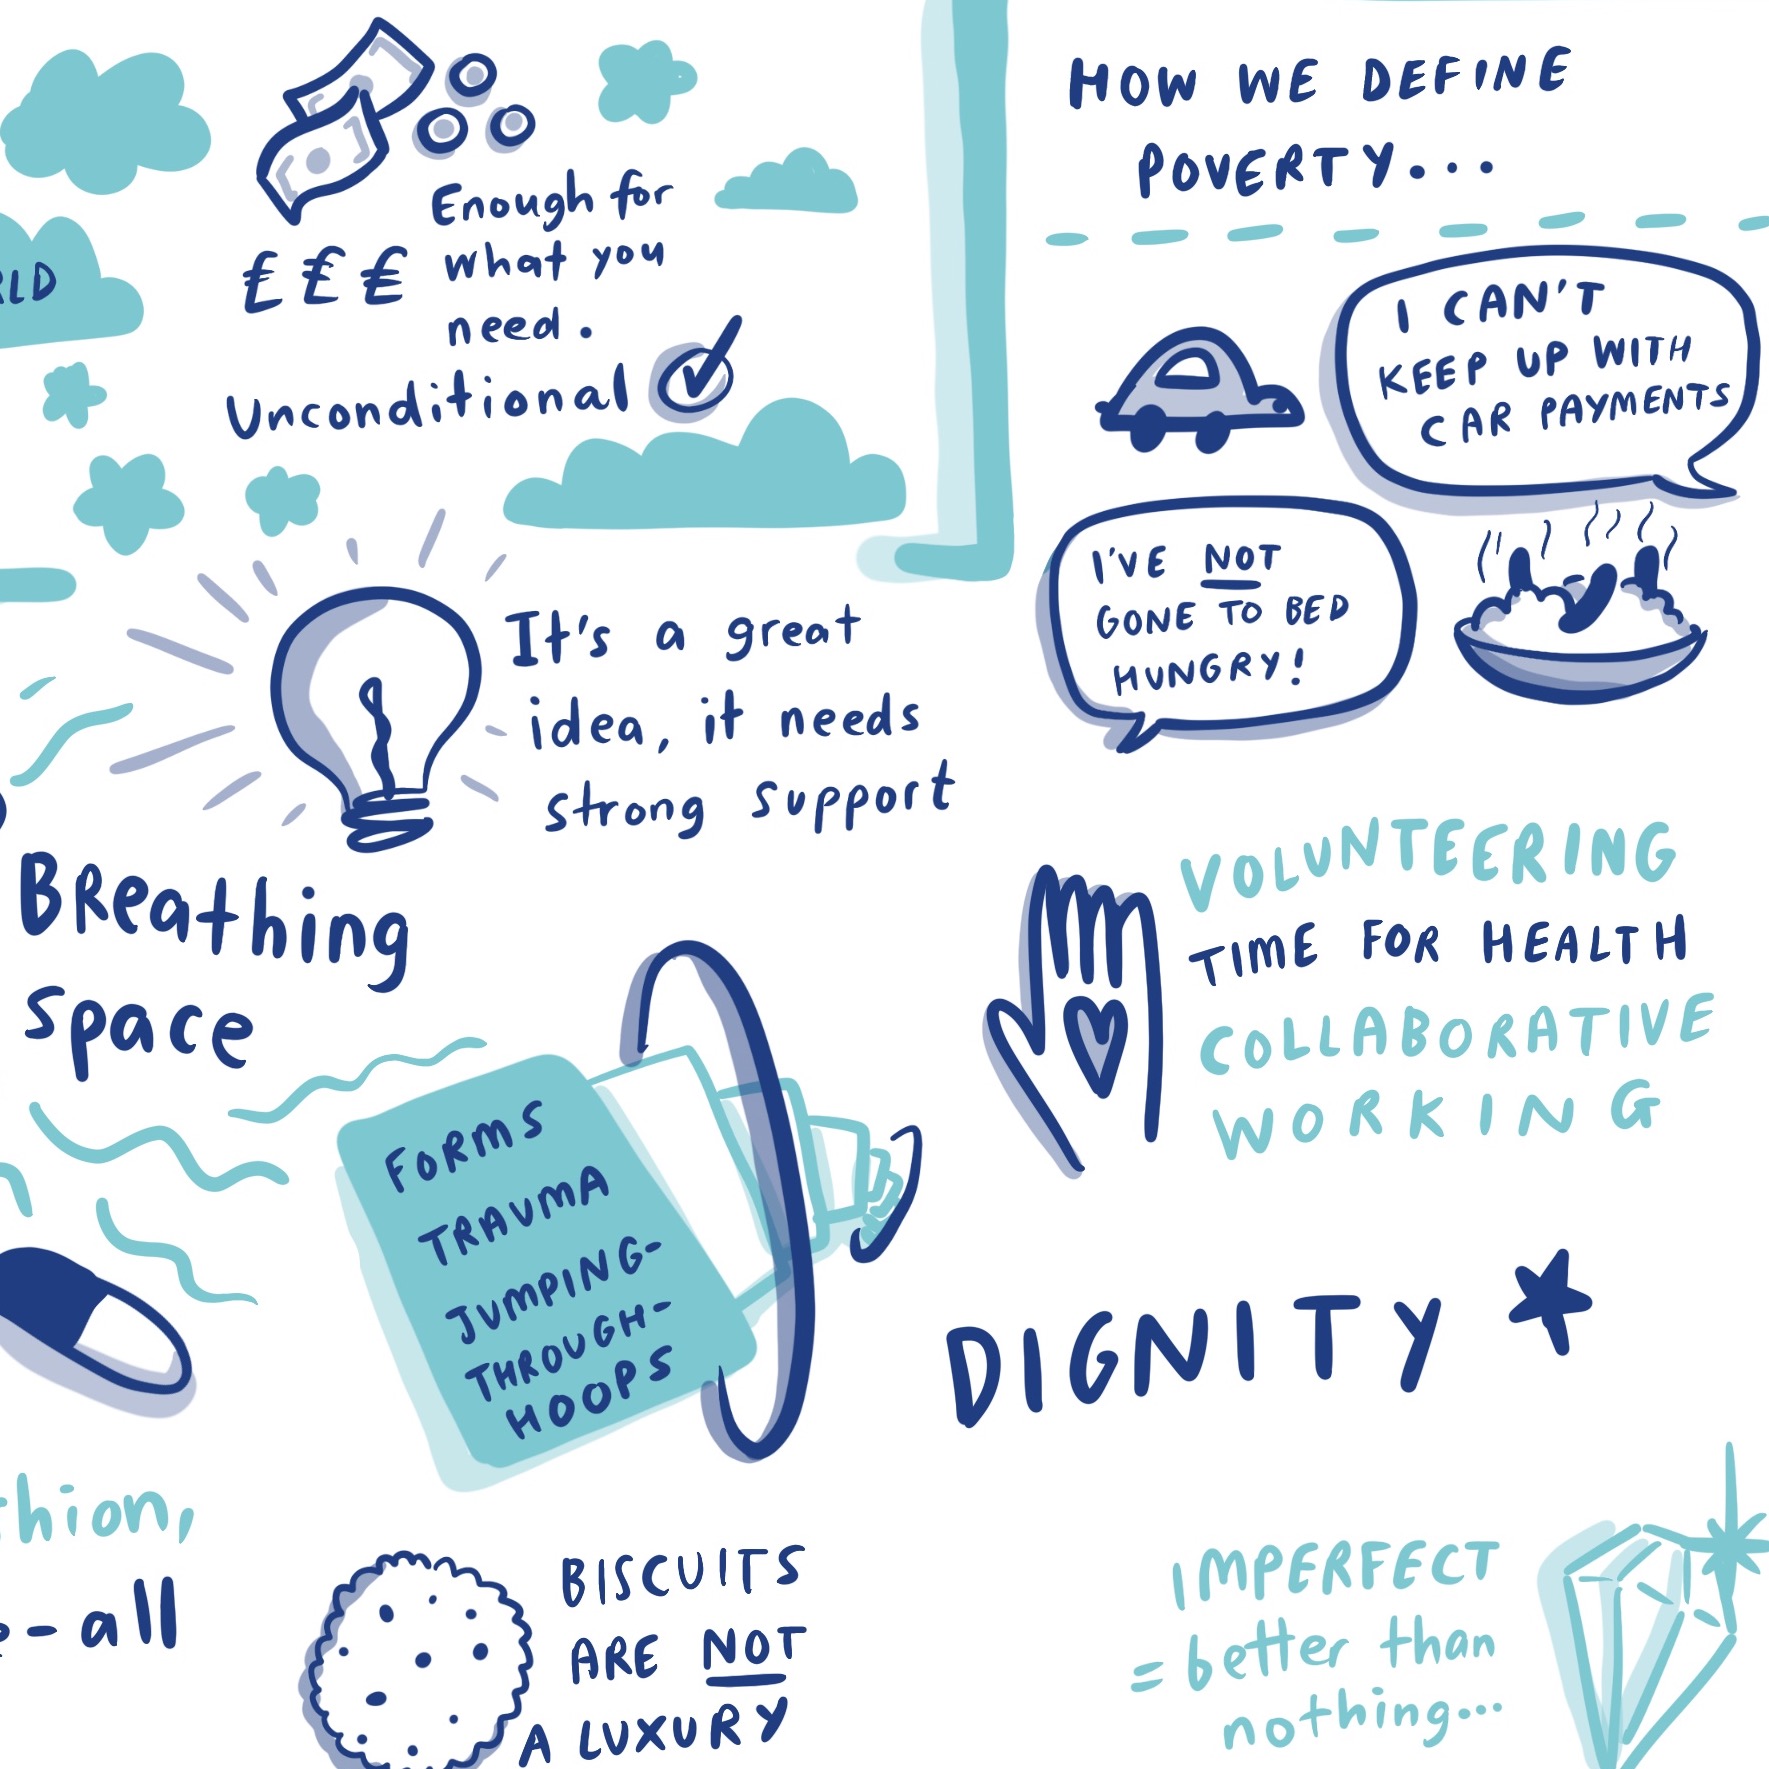 £££
Enough for
what you
need.
Unconditional
HOW WE DEFINE
POVERTY...
I CAN'T
KEEP UP WITH
CAR PAYMENTS
I'VE NOT
GONE TO BED
HUNGRY!
It's a great
idea, it needs
strong support
Breathing
space
VOLUNTEERING
TIME FOR HEALTH
COLLABORATIVE
WORKING
FORMS
TRAUMA
JUMPING-
THROUGH-
HOOPS
DIGNITY
-all
BISCUITS
ARE NOT
A LUXURY
IMPERFECT
= better than
nothing...